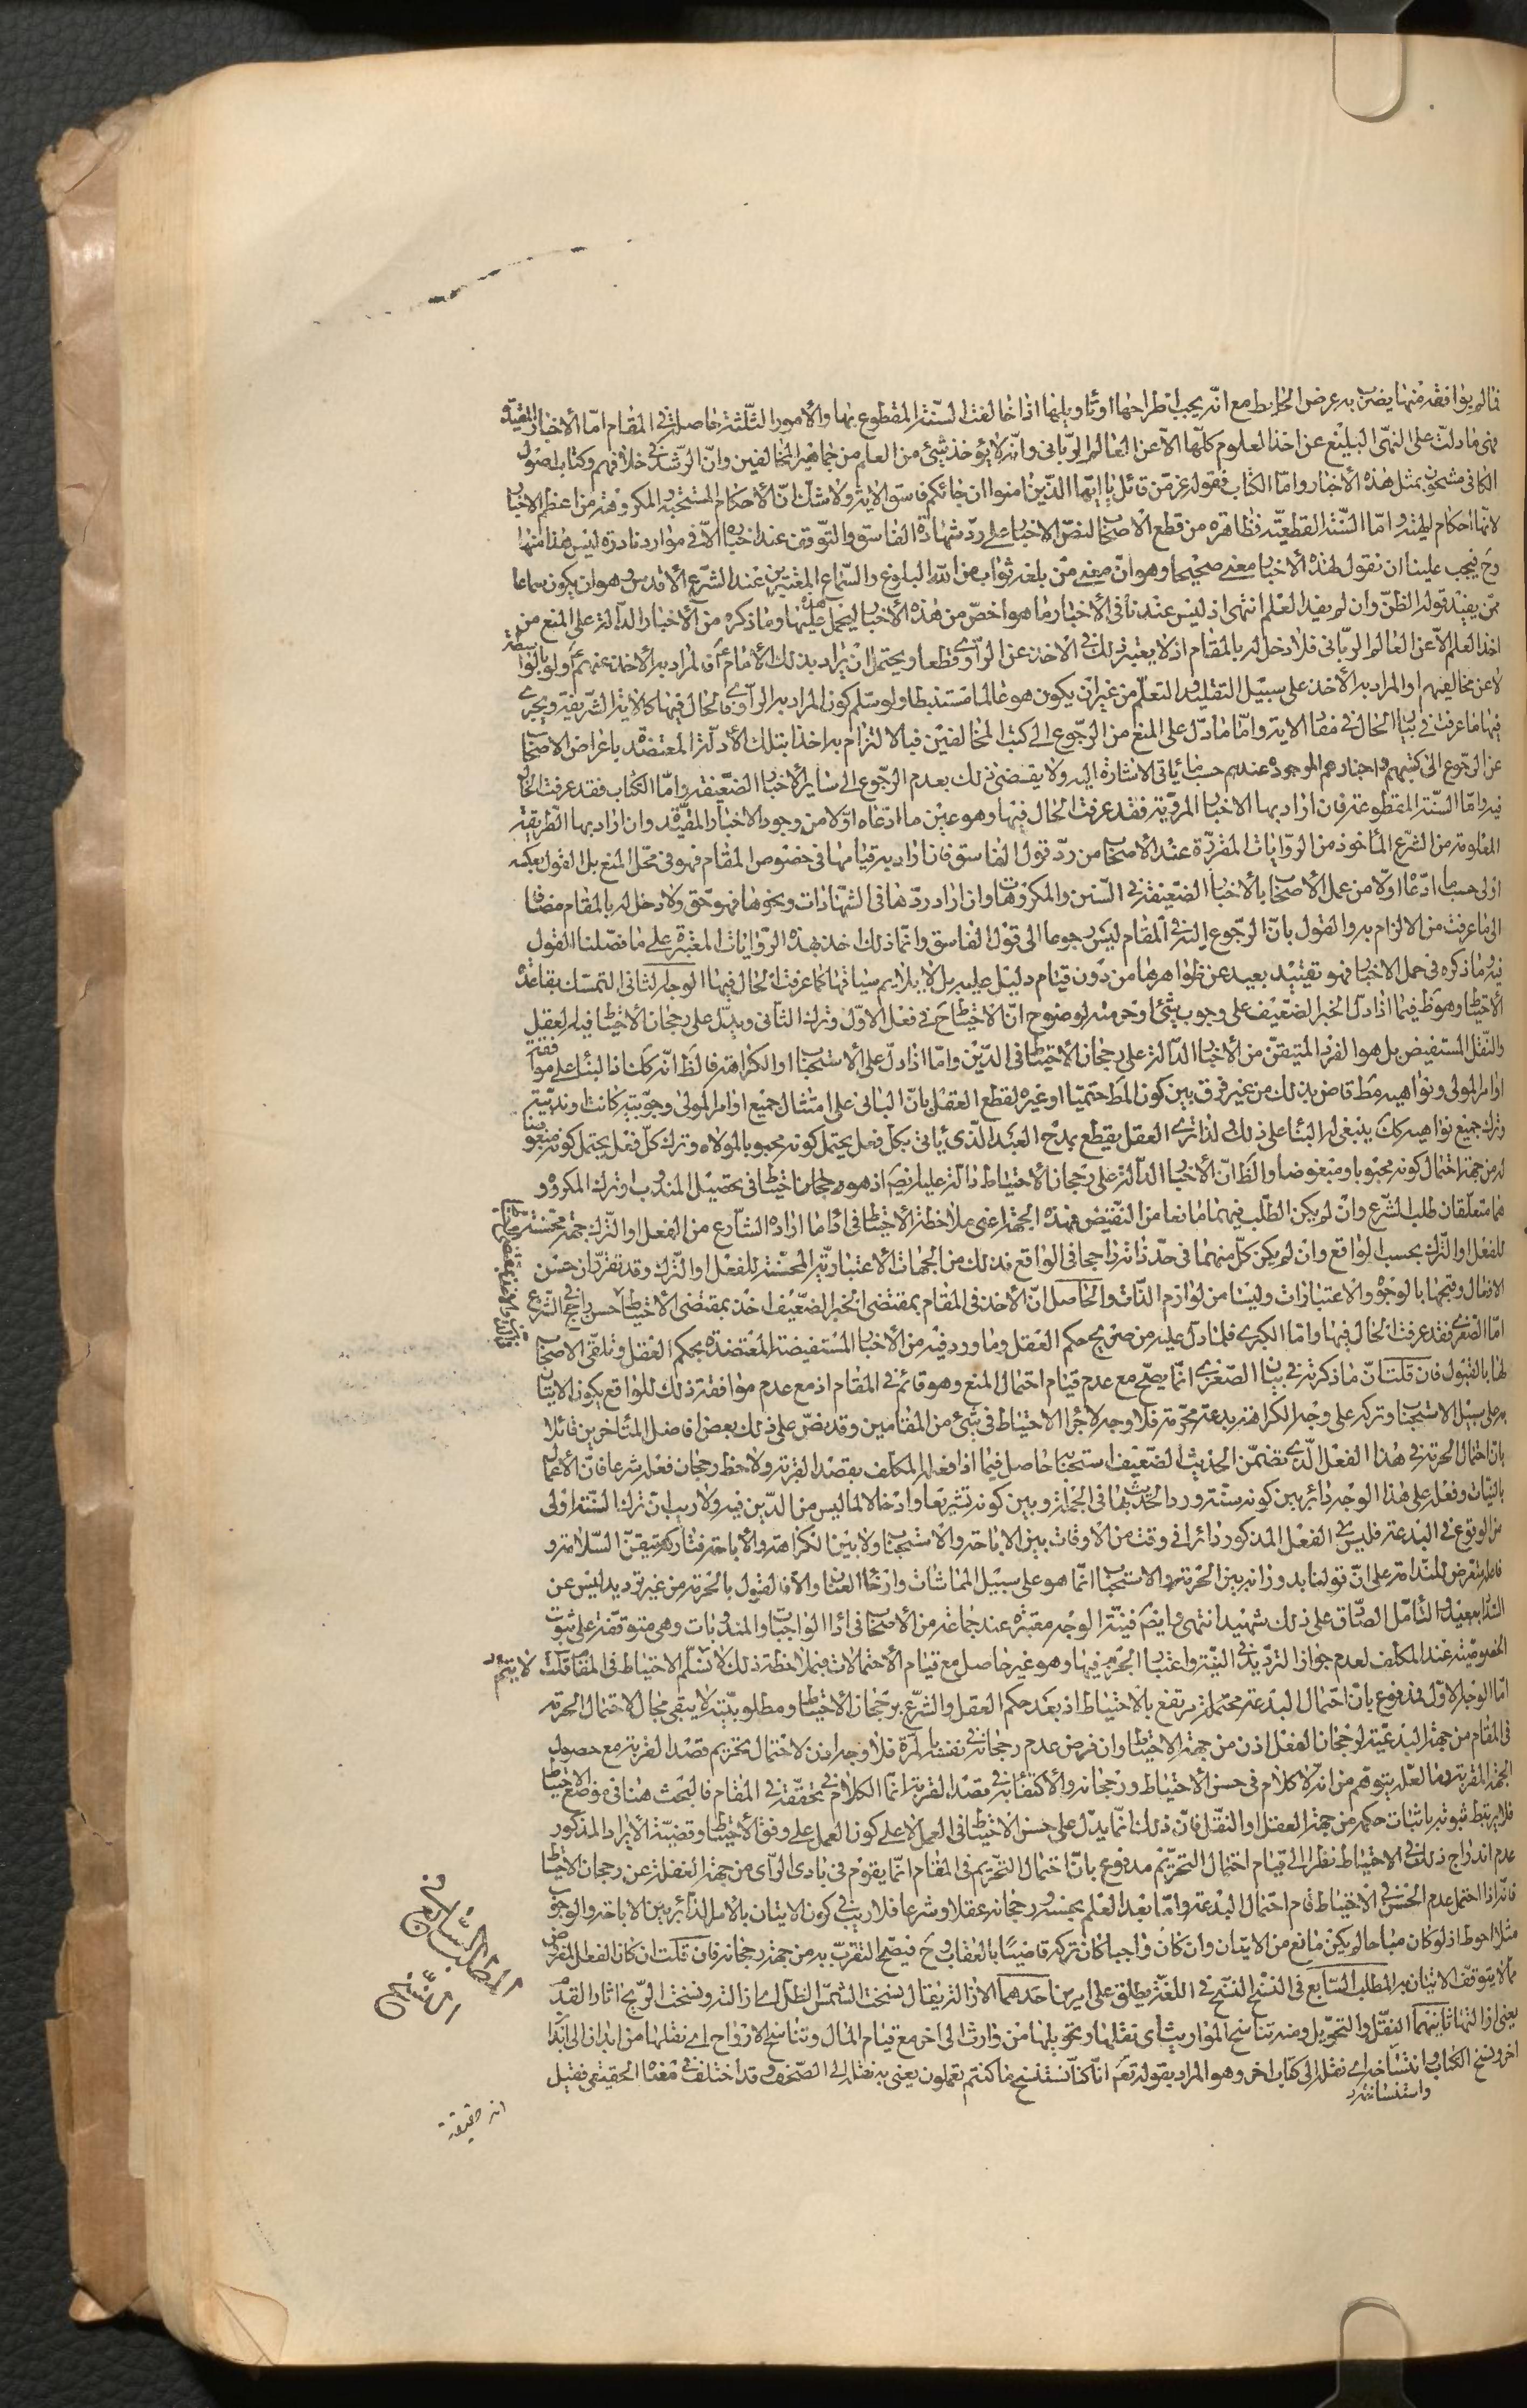 فما لم يوافقه منها يضرب به عرض الحايط مع انّه يجب اطراحها او تاويلها اذا خالفت السّنّة المقطوع بها والامور الثّلثة حاصلة في المقام امّا الاخبار المقيّدة
فهى ما دلّت على النّهى البليغ عن اخذ العلوم كلّها الّا عن العالم الرّبّانى وانّه لا يؤخذ شيئ من العلم من جماهير المخالفين وانّ الرّشد في خلافهم وكتاب اصول
الكافى مشحون بمثل هذه الاخبار وامّا الكتاب فقوله عزّ من قائل يا ايّها الّذين امنوا ان جائكم فاسق الاية ولا شكّ انّ الاحكام المستحبّة والمكروهة من اعظم الانباء
لانّها احكام الهيّة وامّا السّنّة القطعيّة فظاهره من قطع الاصحاب لنصّ الاخبار على ردّ شهادة الفاسق والتّوقّف عند اخباره الّا في موارد نادرة ليس هذا منها
وح فيجب علينا ان نقول لهذه الاخبار معنى صحيحا وهو انّ معنى من بلغه ثواب من الله البلوغ والسّماع المعتبرين عند الشّرع الاقدس وهو ان يكون سماعا
ممّن يفيد قوله الظنّ وان لم يفد العلم انتهى اذ ليس عندنا في الاخبار ما هو اخصّ من هذه الاخبار ليحمل هذه عليها وما ذكره من الاخبار الدّالة على المنع من
اخذ العلم الّا عن العالم الرّبّانى فلا دخل له بالمقام اذ لا يعتبر ذلك في الاخذ عن الرّاوى قطعا ويحتمل ان يراد بذلك الامام ع فالمراد به الاخذ عنهم ع ولو بالواسطة
لا عن مخالفيهم او المراد به الاخذ على سبيل التقليد والتعلّم من غير ان يكون هو عالما مستنبطا ولو سلّم كون المراد به الرّاوى فالحال فيها كالاية الشّريفة ويجرى
فيها ما عرفت في بيان الحال في مفاد الاية وامّا ما دلّ على المنع من الرّجوع الى كتب المخالفين فبالالتزام به اخذا بتلك الادلّة المعتضدة باعراض الاصحاب
عن الرّجوع الى كتبهم واخبارهم الموجودة عندهم حسب ما ياتى الاشارة اليه ولا يقضى ذلك بعدم الرّجوع الى ساير الاخبار الضّعيفة وامّا الكتاب فقد عرفت الحال
فيه وامّا السّنّة المقطوعة فان اراد بها الاخبار المرويّة فقد عرفت الحال فيها وهو عين ما ادّعاه اوّلا من وجود الاخبار المقيّدة وان اراد بها الطّريقة
المعلومة من الشّرع المأخوذ من الرّوايات المقرّرة عند الاصحاب من ردّ قول الفاسق فان اراد به قيامها في خصوص المقام فهو في محلّ المنع بل القول بعكسه
اولى حسب ما ادّعا اوّلا من عمل الاصحاب بالاخبار الضّعيفة في السّنن والمكروهات وان اراد ردّها في الشّهادات ونحوها فهو حقّ ولا دخل له بالمقام مضافا
الى ما عرفت من الالزام به والقول بانّ الرّجوع اليه في المقام ليس رجوعا الى قول الفاسق وانّما ذلك اخذ بهذه الرّوايات المعتبرة على ما فصّلنا القول
فيه وما ذكره في حمل الاخبار فهو تقييد بعيد عن ظواهرها من دون قيام دليل عليه بل لا يلايم سياقها كما عرفت الحال فيها الوجه الثانى التمسّك بقاعدة
الاحتياط وهو ظ فيما اذا دلّ الخبر الضّعيف على وجوب شيئ او حرمته لوضوح انّ الاحتياط ح في فعل الاوّل وترك الثّانى ويدلّ على رجحان الاحتياط فيه العقل
والنّقل المستفيض بل هو القدر المتيقّن من الاخبار الدّالة على رجحان الاحتياط في الدّين وامّا اذا دلّ على الاستحباب او الكراهة فالظ انّه كك اذ البناء على موافقة
اوامر المولى ونواهيه مط قاض بذلك من غير فرق بين كون المط حتميّا او غيره لقطع العقل بانّ البانى على امتثال جميع اوامر المولى وجوبيّة كانت او ندبيّة
وترك جميع نواهيه كك ينبغى له البناء على ذلك ولذا ترى العقل يقطع بمدح العبد الّذى ياتى بكلّ فعل يحتمل كونه محبوبا لمولاه وترك كلّ فعل يحتمل كونه مبغوضا
له من جهة احتمال كونه محبوبا ومبغوضا والظ انّ الاخبار الدّالة على رجحان الاحتياط دالّة عليه ايضا اذ هو رجحان احتياط في تحصيل المندوب او ترك المكروه و
هما متعلّقان طلب الشّرع وان لم يكن الطّلب فيهما مانعا من النّقيض فهذه الجهة اعنى ملاحظة الاحتياط في اداء ما اراده الشّارع من الفعل او التّرك جهة محسّنة
للفعل او التّرك بحسب الواقع وان لم يكن كلّ منهما في حدّ ذاته راجحا في الواقع فذلك من الجهات الاعتباريّة المحسّنة للفعل او التّرك وقد تقرّر ان حسن
الافعال وقبحها بالوجوه والاعتبارات وليسا من لوازم الذّات والحاصل انّ الاخذ في المقام بمقتضى الخبر الضّعيف اخذ بمقتضى الاحتياط حسن راجح في الشّرع
امّا الصّغرى فقد عرفت الحال فيها وامّا الكبرى فلما دلّ عليه من صريح حكم العقل وما ورد فيه من الاخبار المستفيضة المعتضدة بحكم العقل وتلقّى الاصحاب
لها بالقبول فان قلت انّ ما ذكرته في بيان الصّغرى انّما يصحّ مع عدم قيام احتمال المنع وهو قائم في المقام اذ مع عدم موافقة ذلك للواقع يكون الاتيان
به على سبيل الاستحباب وتركه على وجه الكراهة بدعة محرّمة فلا وجه لاجراء الاحتياط في شيئ من المقامين وقد نصّ على ذلك بعض افاضل المتأخرين قائلا
بان احتمال الحرمة في هذا الفعل الّذى تضمّن الحديث الضّعيف استحبابه حاصل فيما اذا فعله المكلّف بقصد القربة ولاحظ رجحان فعله شرعا فانّ الاعمال
بالنيّات وفعله على هذا الوجه دائر بين كونه سنّة ورد الحديث بها في الجملة وبين كونه تشريعا وادخالا لما ليس من الدّين فيه ولا ريب انّ ترك السّنّة اولى
من الوقوع في البدعة فليس الفعل المذكور دائرا في وقت من الاوقات بين الاباحة والاستحباب ولا بين الكراهة والاباحة فتاركه متيقّن السّلامة و
فاعله متعرّض للنّدامة على انّ قولنا بدورانه بين الحرمة والاستحباب انّما هو على سبيل المماشات وارخاء العنان والا فالقول بالحرمة من غير ترديد ليس عن
السّداد ببعيد والتامّل الصّادق على ذلك شهيد انتهى وايضا فنيّة الوجه معتبرة عند جماعة من الاصحاب في اداء الواجبات والمندوبات وهى متوقفة على ثبوت
الخصوصيّة عند المكلّف لعدم جواز التّرديد في النيّة واعتبار الجزم فيها وهو غير حاصل مع قيام الاحتمالات فبملاحظة ذلك لا نسلّم الاحتياط في المقام قلت لا يتمّ شيئ
امّا الوجه الاوّل فمدفوع بانّ احتمال البدعة محتملة مرتفع بالاحتياط اذ بعد حكم العقل والشّرع برجحان الاحتياط ومطلوبيّته لا يبقى مجال لاحتمال الحرمة
في المقام من جهة البدعيّة لرجحان الفعل اذن من جهة الاحتياط وان فرض عدم رجحانه في نفسه بالمرّة فلا وجه اذن لاحتمال تحريم قصد القربة مع حصول
الجهة المقرّبة وما لعلّه يتوهّم من انّه لا كلام في حسن الاحتياط ورجحانه والاكتفاء به في قصد القربة انّما الكلام في تحقّقه في المقام فالبحث هنا في موضع الاحتياط
فلا يرتبط ثبوته باثبات حكمه من جهة العقل او النّقل فانّ ذلك انّما يدلّ على حسن الاحتياط في العمل لا على كون العمل على وفق الاحتياط وقضيّة الايراد المذكور
عدم اندراج ذلك في الاحتياط نظرا الى قيام احتمال التحريم مدفوع بانّ احتمال التّحريم في المقام انّما يقوم في بادى الرّاى من جهة الغفلة عن رجحان الاحتياط
فانّه اذا احتمل عدم الحسن في الاحتياط قام احتمال البدعة وامّا بعد العلم بحسنه ورجحانه عقلا وشرعا فلا ريب في كون الاتيان بالامر الدّائر بين الاباحة والوجوب
مثلا احوط اذ لو كان مباحا لم يكن مانع من الاتيان وان كان واجبا كان تركه قاضيا بالعقاب وح فيصحّ التقرّب به من جهة رجحانه فان قلت ان كان الفعل المفروض
ممّا لا يتوقف الاتيان به المطلب السّابع في النّسخ النّسخ في اللغة يطلق على امرين احدهما الازالة يقال نسخت الشّمس الظلّ اى ازالته ونسخت الرّيح اثار القدم
يعنى ازالتها ثانيهما النّقل والتحويل ومنه تناسخ المواريث اى نقلها وتحويلها من وارث الى اخر مع قيام المال وتناسخ الارواح اى نقلها من ابدان الى ابدان
اخر ونسخ الكتاب وانتساخه اى نقله الى كتاب اخر وهو المراد بقوله تعم انّا كنّا نستنسخ ما كنتم تعملون يعنى به نقله الى الصّحف وقد اختلف في معناه الحقيقى فقيل
واستنساخه
المطلب السّابع في
النّسخ
انه حقيقة